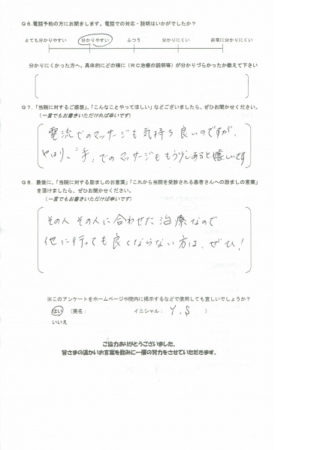 Q6.電話予約の方にお聞きします。電話での対応・説明はいかがでしたか?
とても分かりやすい 分かりやすい ふつう 分かりにくい 非常に分かりにくい
分かりにくかった方へ、具体的にどの様に(RC治療の説明等)が分かりづらかったか教えて下さい
Q7.「当院に対するご感想」、「こんなことやってほしい」などございましたら、ぜひお聞かせください。
(一言でもお書きいただければ幸いです)
電流でのマッサージも気持ち良いのですが、
やはり、"手"でのマッサージももう少しあると嬉しいです
Q8.最後に、「当院に対する励ましのお言葉」「これから当院を受診される患者さんへの励ましの言葉」
を頂けましたら、ぜひお聞かせください。
(一言でもお書きいただければ幸いです)
その人その人に合わせた治療なので
他に行っても良くならない方は、ぜひ!
※このアンケートをホームページや院内に掲示するなどで使用しても宜しいでしょうか?
はい (匿名・ イニシャル: Y.S )
いいえ
ご協力ありがとうございました。
皆さまの温かいお言葉を励みに一層の努力をさせていただきます。